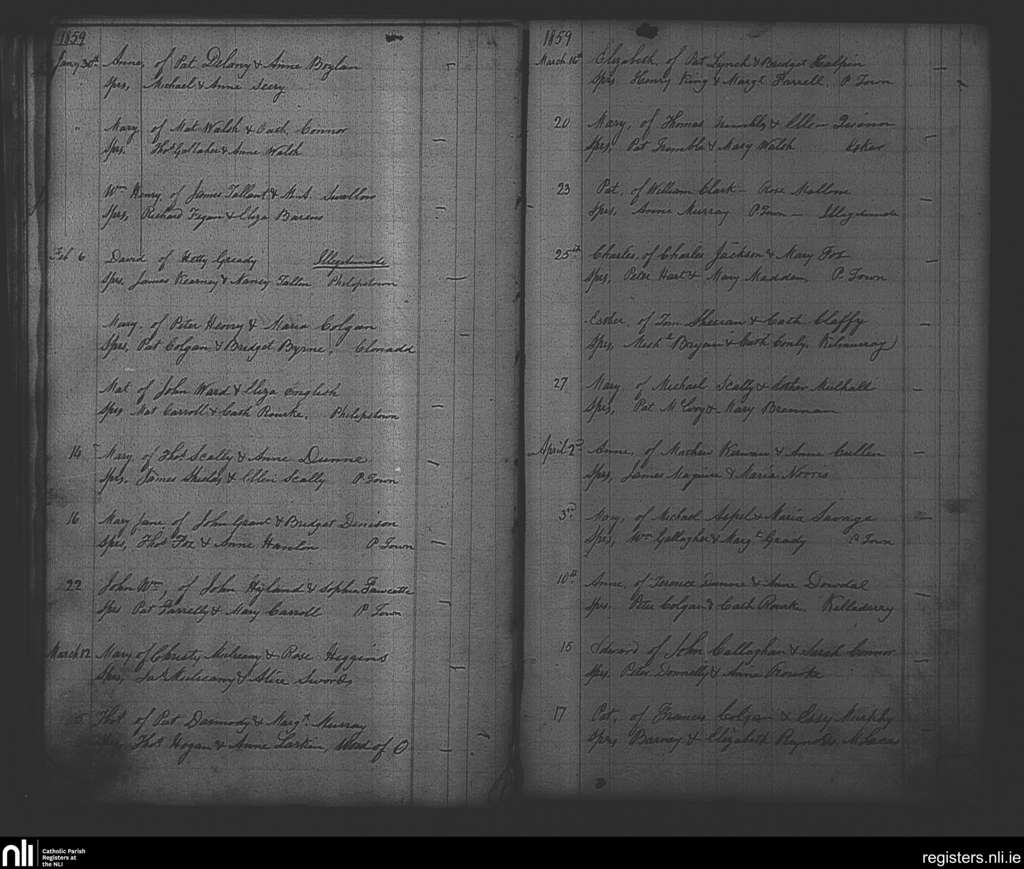 1859
Jany 30th Anne, of Pat Delany & Anne Boylan
Sprs, Michael & Anne Seery
" Mary of Mat Walsh & Cath. Connor
Sprs. Thos Gallaher & Anne Walsh
Wm Henry of James Tallant & M.A. Swallow
Sprs, Richard Fegan & Eliza
Feb 6 David of Hetty Gready Illegitimate
Sprs. James Kearney & Nancy Fallen Philipstown
Mary, of Peter Henry & Maria Colgan
Sprs, Pat Colgan & Bridget Byrne, Clonadd
Mat of John Ward & Eliza English
Sprs Mat Carroll & Cath Rourke, Philipstown
14 Mary of Thos Scally & Anne Dunne
Sprs, James & Ellen Scally P. Town
16 Mary Jane of John Grant & Bridget Denison
Sprs, Thos Fox & Anne Hanlon P Town
22 John Wm, of John Hyland & Sophia Fawcette
Sprs Pat Farrelly & Mary Carroll P Town
March 12 Mary of Christy & Rose Higgins
Sprs, Jas & Alice Swords
Thos of Pat Darmody & Margt Murray
Thos Hogan & Anne Larkin, Wood of O
1859
March 16th Elizabeth of Pat Lynch & Bridget Halpin
Sprs Henry King & Margt Farrell, P Town
20 Mary, of Thomas & Ellen
Sprs, Pat Trimble & Mary Walsh Esker
23 Pat, of William Clark Rose Mallone
Sprs, Anne Murray P. Town Illegitimate
25th Charles, of Charles Jackson & Mary Fox
Sprs, Peter Hart & Mary Madden, P Town
Esther, of Tom Sheeran & Cath Claffy
Sprs, Michl Bryan & Cath Conly,
27 Mary of Michael Scally & Esther Mulhall
Sprs, Pat McEvoy & Mary Brennan
April 2nd Anne, of Mathew Kirwan & Anne Cullen
Sprs, James Maguire & Maria Norris
3rd Mary, of Michael & Maria Savage
Sprs, Wm Gallagher & Margt Grady P Town
10th Anne, of Terence Dunne & Anne Dowdal
Sprs. Peter Colgan & Cath Rourke, Killaderry
15 Edward of John Callaghan & Sarah Connor
Sprs. Peter Donnelly & Anne Rourke
17 Pat, of Francis Colgan & Essy Murphy
Sprs, Barney & Elizabeth Reynolds,
nli
Catholic Parish
Registers at
the NLI
registers.nli.ie